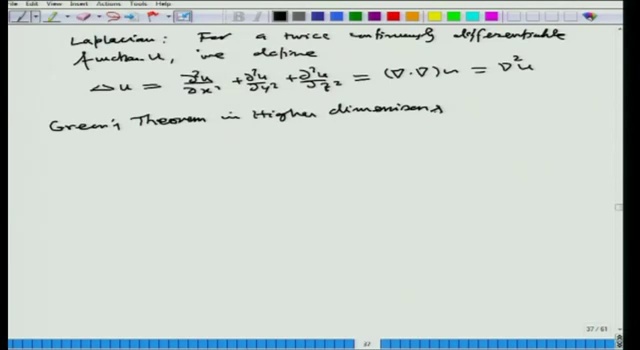 Edit View Insert Actions Tools Help
Laplacian: For a twice continuously differentiable
function u, we define
Δu = ∂²u/∂x² + ∂²u/∂y² + ∂²u/∂z² = (∇·∇)u = ∇²u
Green's Theorem in Higher dimensions
37 / 61
37